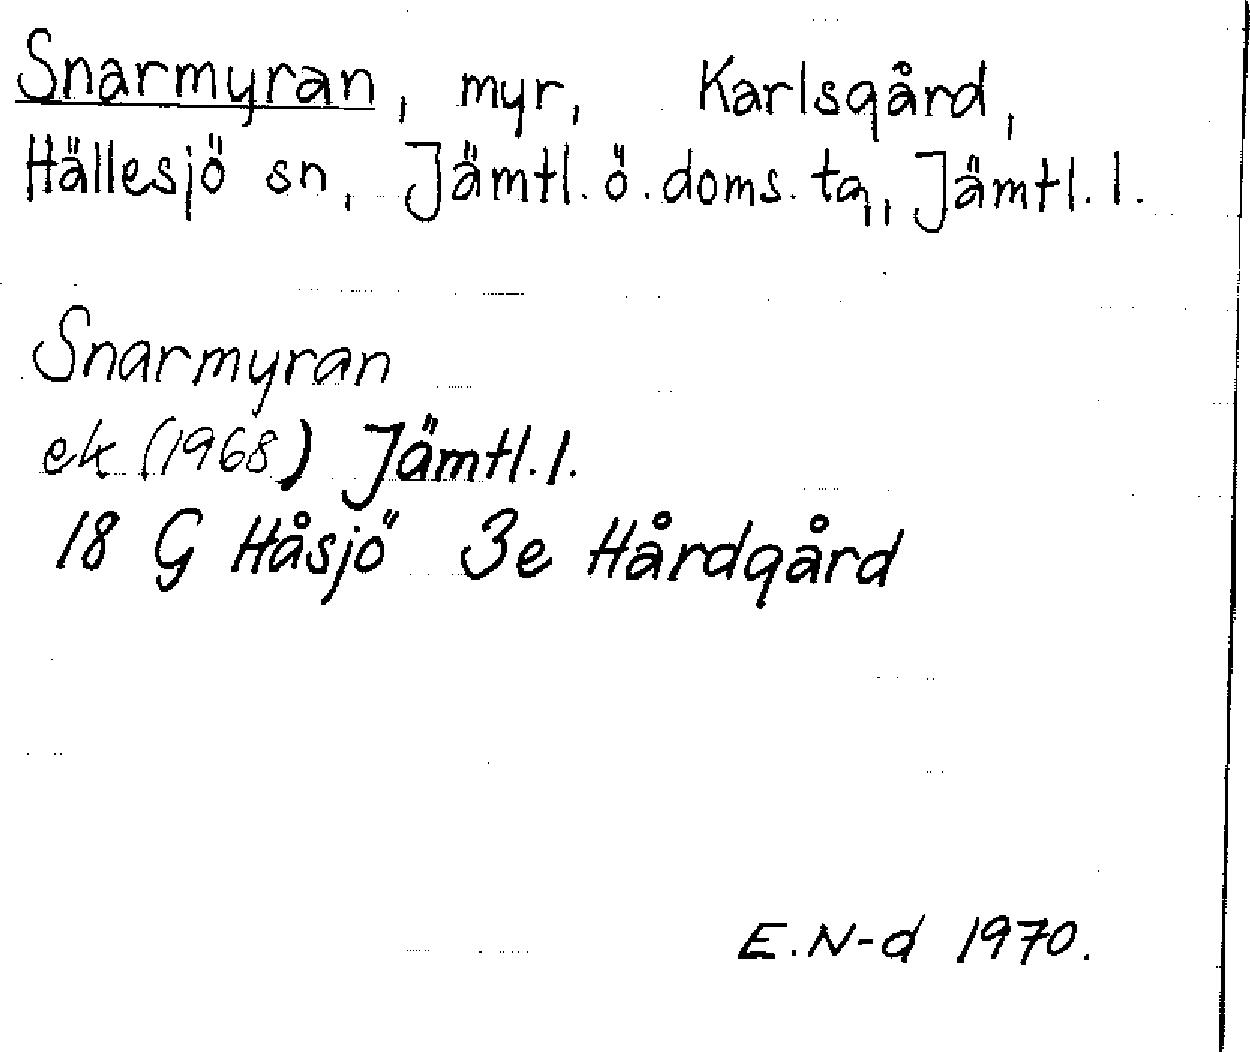 Snarmyran, myr, Karlsgård,
Hällesjö sn, Jämtl. ö. doms. tg, Jämtl. l.
Snarmyran
ek (1968) Jämtl. l.
18 G Håsjö 3e Hårdgård
E. N-d 1970.